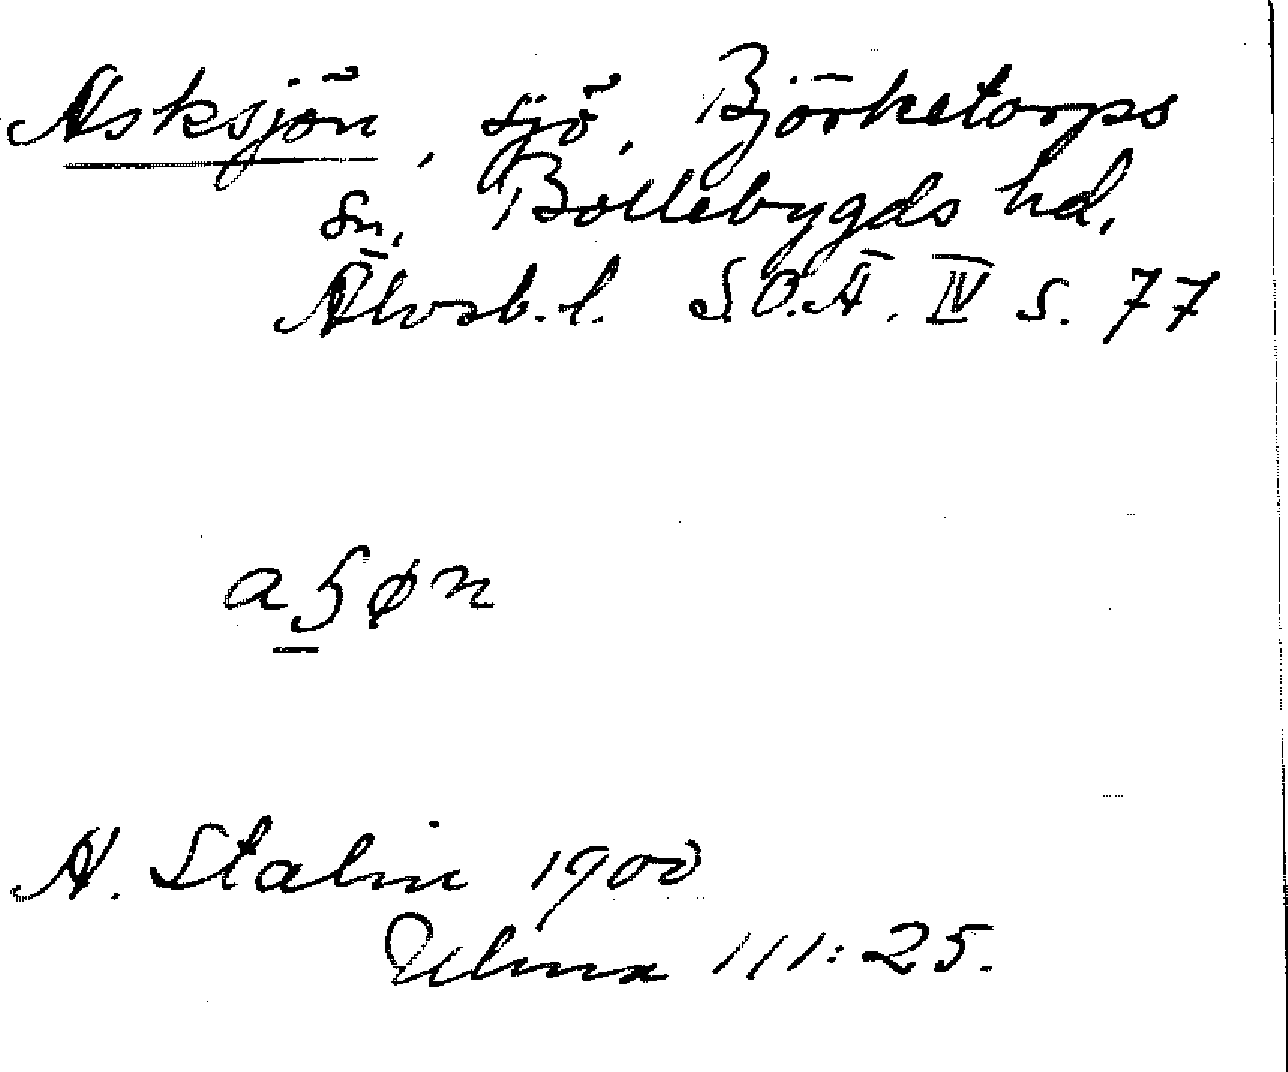 Asksjön, sjö, Björketorps
sn. Bollebygds hd.
Älvsb. l. S.O.Ä. IV S. 77
a5øn
A. Stalin 1900
Ulma 111:25.